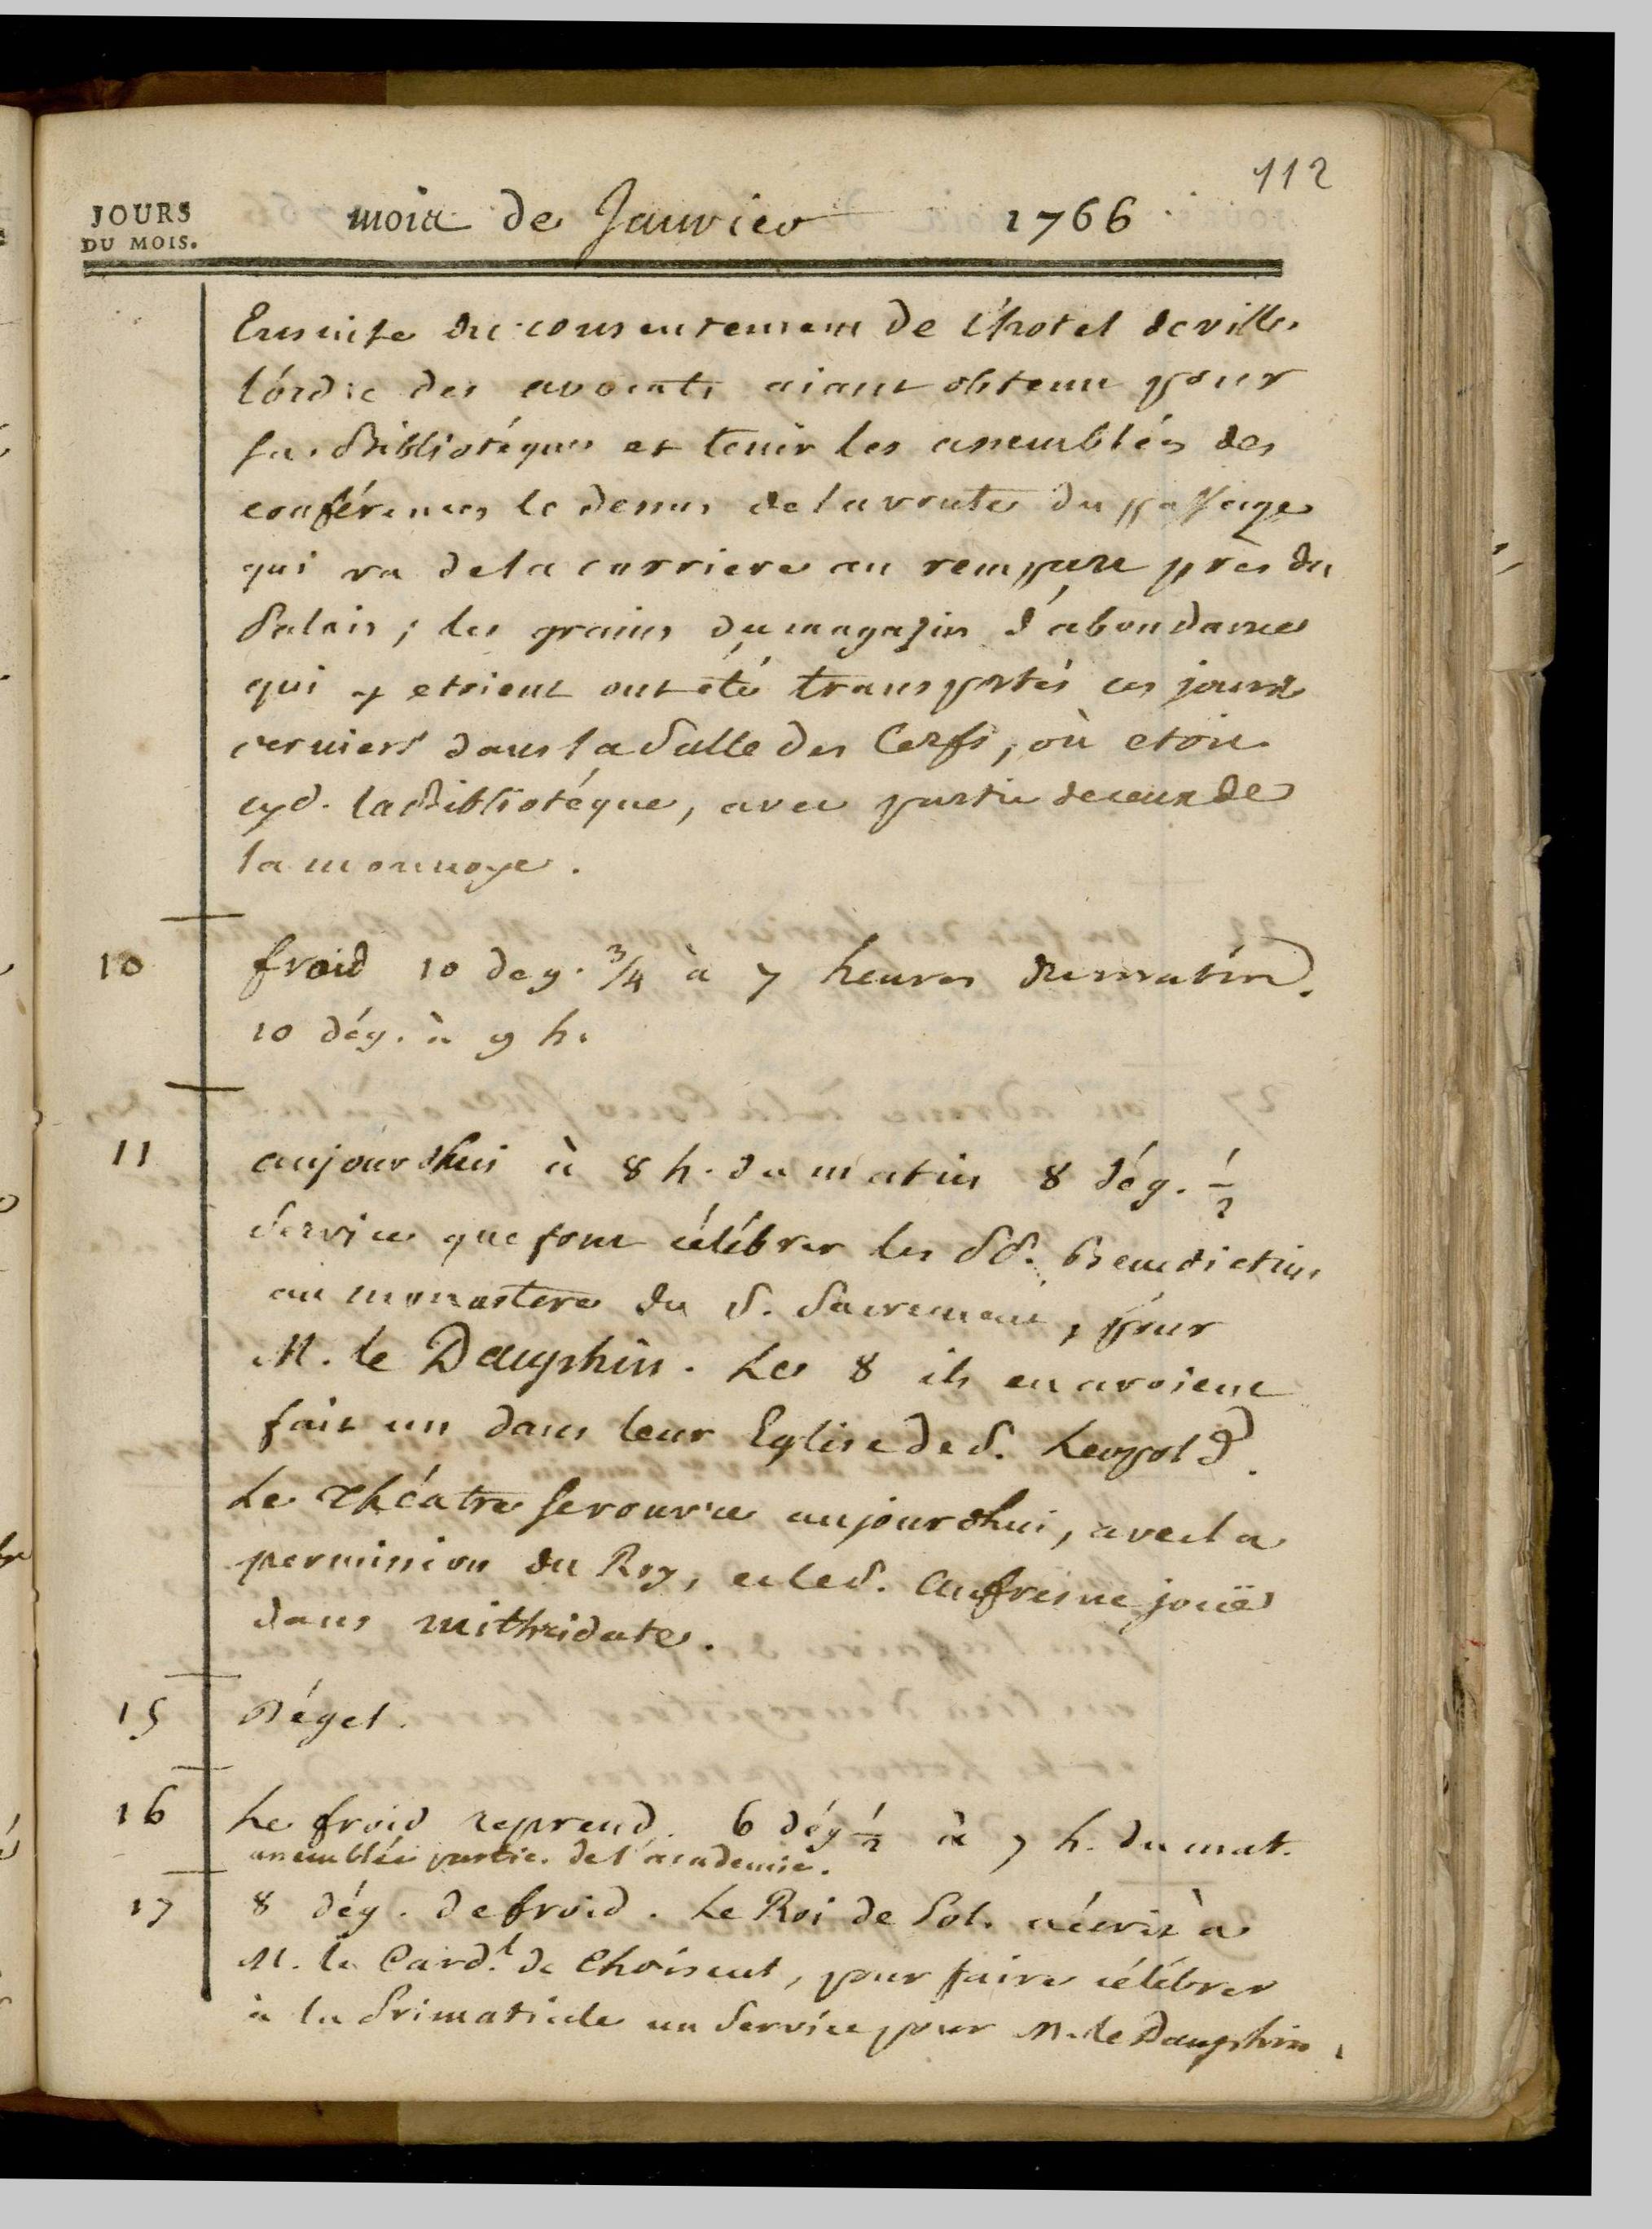 112
JOURS
DU MOIS.
mois de Janvier 1766
Ensuite du consentement de l'hotel de ville,
l'ordre des avocats aiant obtenu pour
sa Bibliotéque et tenir les assemblées des
conférences le dessus de la voute du passage
qui va de la carriere au rempart près du
Palais ; les grains du magazin d'abondance
qui y etoient ont été transportés ces jours
derniers dans la Salle des Cerfs, où etoit
cyd. la Bibliotéque, avec partie de ceux de
la monnoye.
10 froid 10 deg. 3/4 à 7 heures du matin.
10 dég. à 9 h.
11 aujourdhui à 8 h. du matin 8 dég. 1/2
Service que font célébrer les PP. Benedictins
au monastere du S. Sacrement, pour
M. le Dauphin. Le 8 ils en avoient
fait un dans leur Eglise de S. Leopold.
Le Théatre se rouvre aujourdhui, avec la
permission du Roy, et le S. Aufresne joüe
dans mithridate.
15 Dégel.
16 Le froid reprend. 6 dég 1/2 à 7 h. du mat.
assemblée partic. de l'academie.
17 8 dég. de froid. Le Roi de Pol. a écrit à
M. le Card.l de Choiseul, pour faire célébrer
à la Primatiale un Service pour M. le Dauphin,